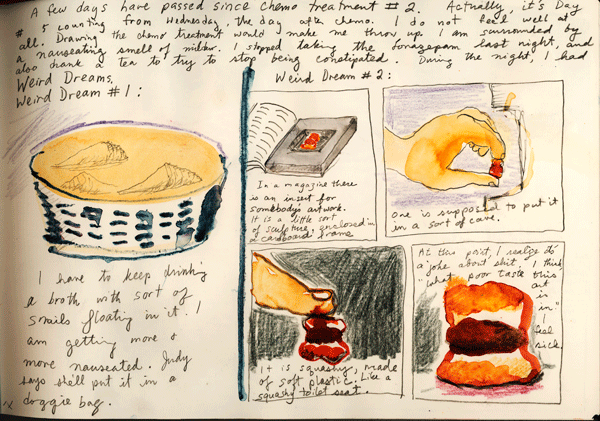 A few days have passed since chemo treatment #2. Actually, it's Day
# 5 counting from Wednesday, the day after chemo. I do not feel well at
all. Drawing the chemo treatment would make me throw up. I am surrounded by
a nauseating smell of mildew. I stopped taking the lorazepam last night, and
also drank a tea to try to stop being constipated. During the night, I had
Weird Dreams.
Weird Dream #1:
I have to keep drinking
a broth with sort of
snails floating in it. I
am getting more &
more nauseated. Judy
says she'll put it in a
doggie bag.
Weird Dream #2:
In a magazine there
is an insert for
somebody's artwork.
It is a little sort
of sculpture, enclosed in
a cardboard frame
One is supposed to put it
in a sort of cave.
It is squashy, made
of soft plastic. Like a
squashy toilet seat.
At this point, I realize it's
a joke about shit. I think,
"what poor taste this
art
is
in."
I
feel
sick.